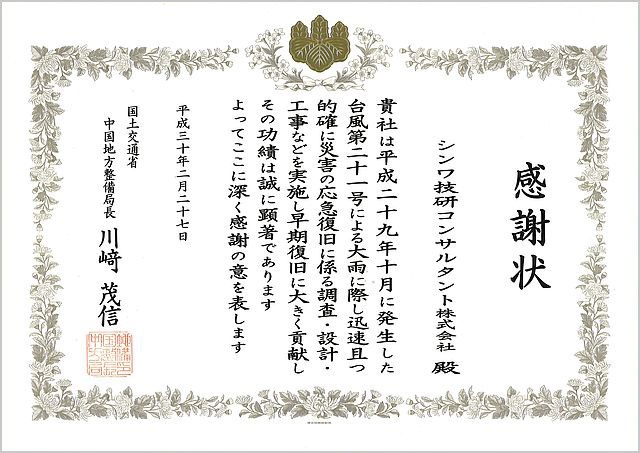 感謝状
シンワ技研コンサルタント株式会社 殿
貴社は平成二十九年十月に発生した
台風第二十一号による大雨に際し迅速且つ
的確に災害の応急復旧に係る調査・設計・
工事などを実施し早期復旧に大きく貢献し
その功績は誠に顕著であります
よってここに深く感謝の意を表します
平成三十年二月二十七日
国土交通省
中国地方整備局長 川﨑 茂信